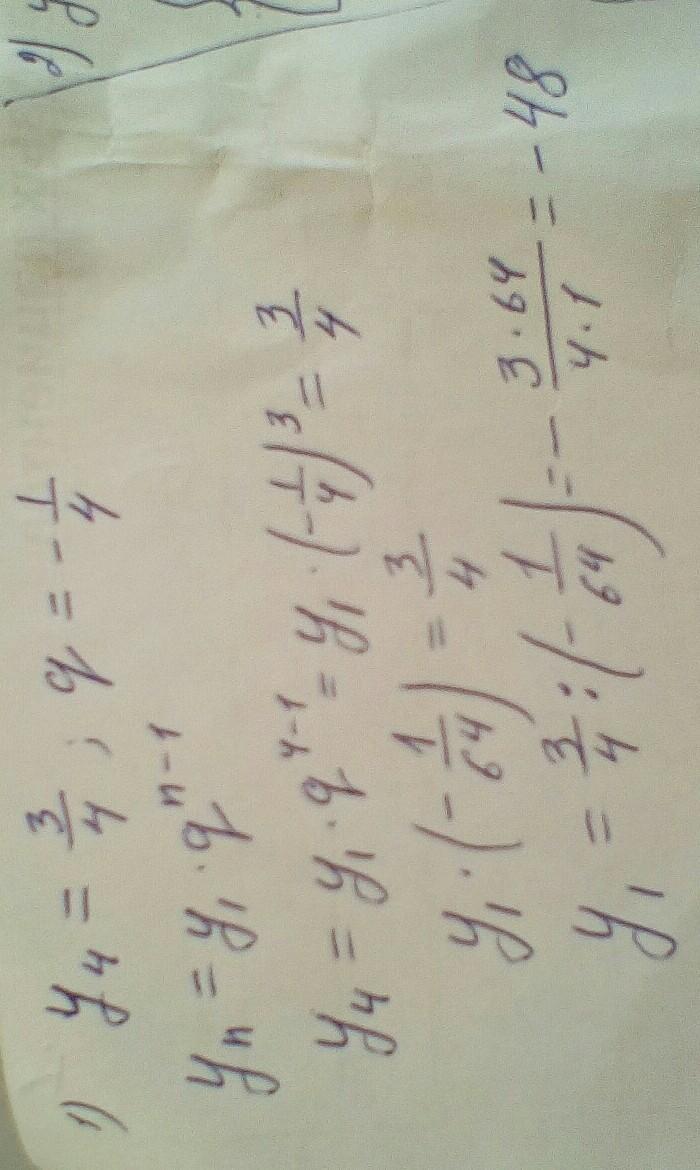 1) y₄ = 3/4 ; q = -1/4
yₙ = y₁ · qⁿ⁻¹
y₄ = y₁ · q⁴⁻¹ = y₁ · (-1/4)³ = 3/4
y₁ · (-1/64) = 3/4
y₁ = 3/4 : (-1/64) = - 3·64/4·1 = - 48
2) y